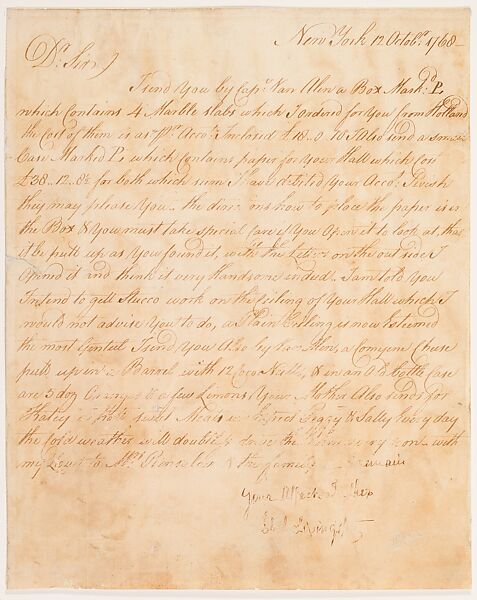 New York 12 Octobr. 1768
Dr. Sir
I send You by Capt. Van Alen a Box Markd. P,
which Contains 4 Marble slabs which I ordered for You from Holland
the Cost of them is as pr. Accot. Inclosed £18..0 I Also send a
Case Marked P, which Contains paper for Your Hall which Cost
£38..12..8½ for both which sum I have debited Your Accot. I wish
they may please You.. the directions how to place the paper is in
the Box & You must take special care if You Open it to look at, that
it be put up as You found it, with the Letter on the out side I
Opened it and think it very handsome indeed.. I am told You
Intend to gett Stucco work on the Ceiling of Your Hall which I
would not advise You to do, a Plain Ceiling is now Esteemed
the most Genteel I send You Also by Van Alen, a Cheese
put up in a Barrel with 12 Coco Nutts, & in an Old bottle Case
are 5 doz Oranges & a few Limons Your Mother Also sends for
some sweet Meats we Expect Peggy & Sally Every day
the Cold weather will doubtless drive them down very soon.. with
my Love to Mrs. Renselaer & the family I remain
Your Affectionate